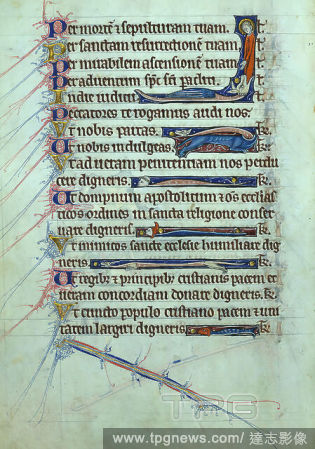 Per mortē ⁊ sepulturam tuam. lt̄.
Per sanctam resurrectionē tuam lt̄.
Per mirabilem ascensionē tuam lt̄.
Per aduentum sp̄c sc̄i paclīti. lt̄.
In die iudicii lt̄.
Peccatores te rogamus audi nos.
Vt nobis parcas. te.
Ut nobis indulgeas. te.
Vt ad ueram penitentiam nos perdu
cere digneris. te.
Ut dompnum apostolicum ⁊ os̄ ecclesias
ticos ordines in sancta religione conser
uare digneris. te.
Vt inimicos sancte ecclesie humiliare dig
neris. te.
Ut regib; ⁊ principib; cristianis pacem et
ueram concordiam donare digneris. te.
Vt cuncto populo cristiano pacem ⁊ uni
tatem largiri digneris. te.
TPG
www.tpgnews.com/達志影像